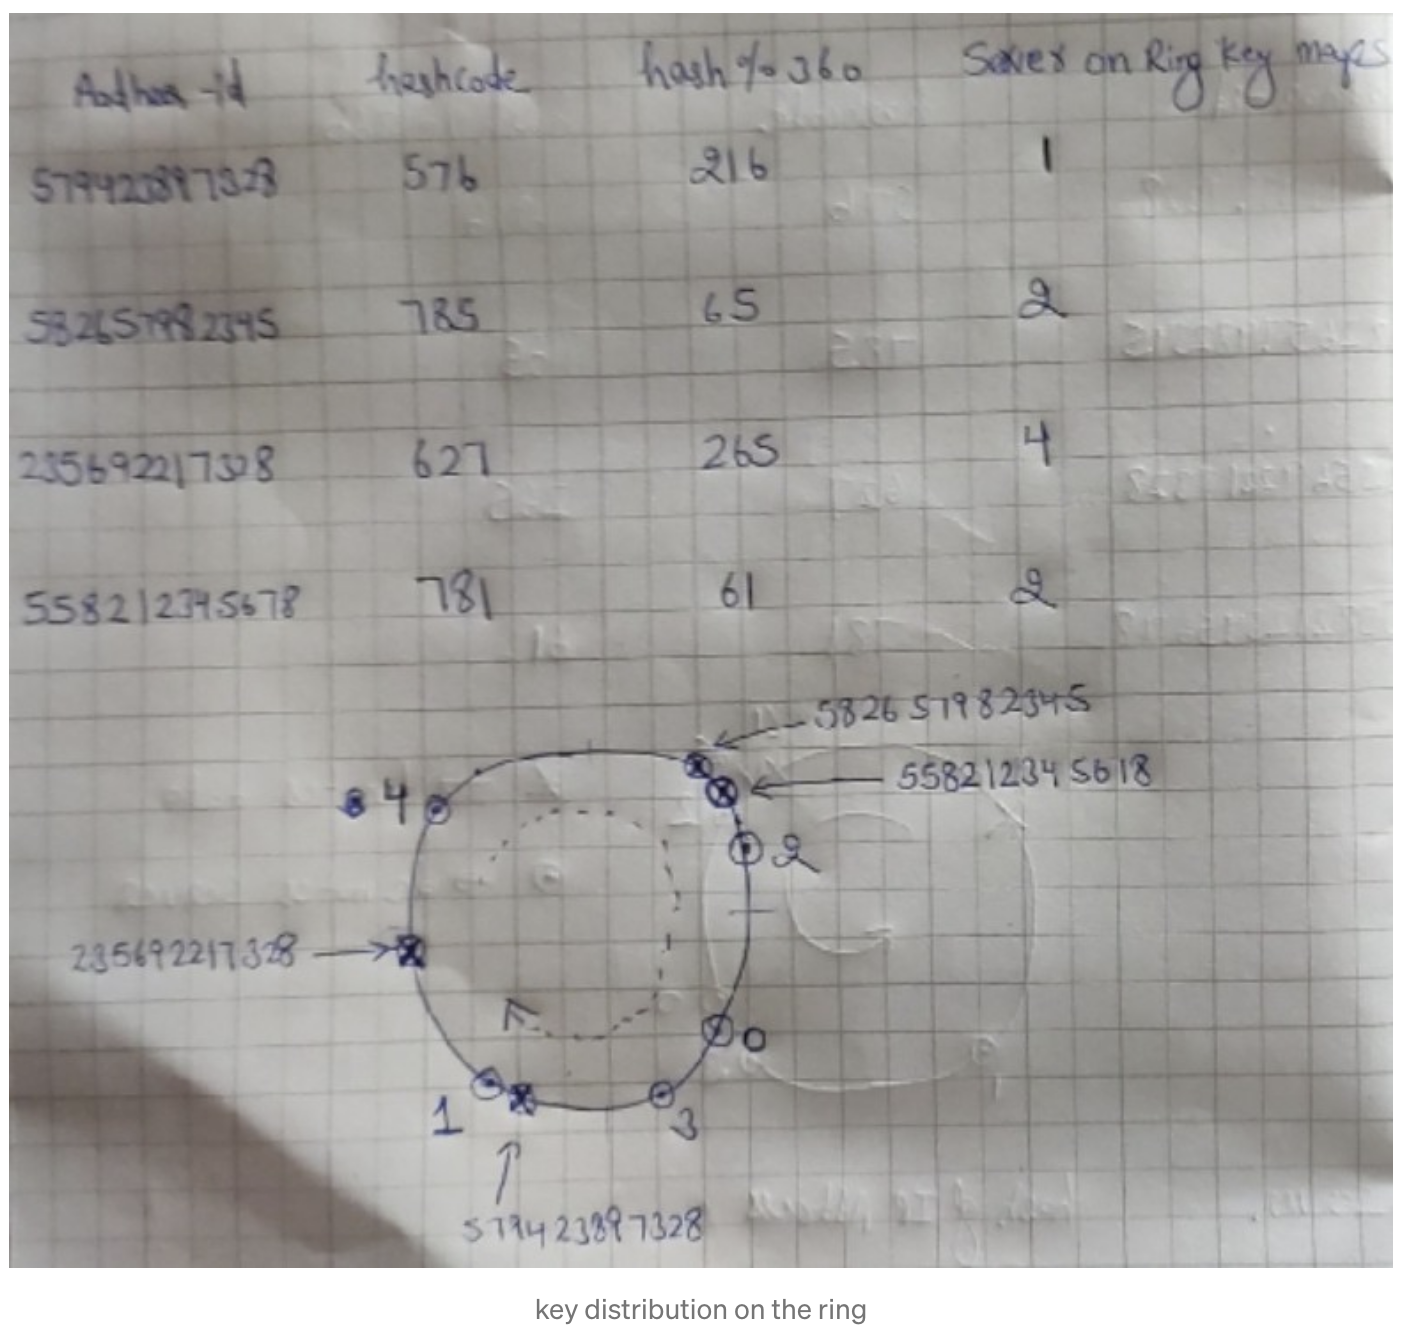 Aadhaar-id hashcode hash % 360 Server on Ring key maps
579423897328 576 216 1
582657982345 785 65 2
235692217328 627 265 4
558212345678 781 61 2
582657982345
558212345618
4
2
235692217328
0
1
3
579423897328
key distribution on the ring